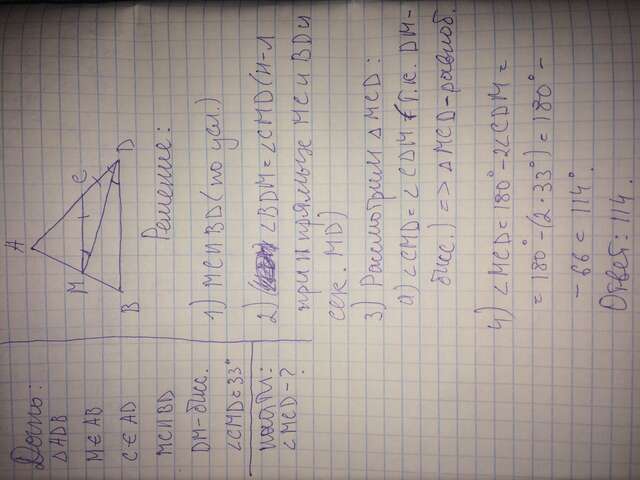 Дано:
△ADB
M∈AB
C∈AD
MC∥BD
DM-бисс.
∠CMD=33°
найти:
∠MCD-?
A
M
C
B
D
Решение:
1) MC∥BD (по усл.)
2) ∠BDM=∠CMD (н-л
при ∥ прямых MC и BD и
сек. MD)
3) Рассмотрим △MCD:
а) ∠CMD=∠CDM (т.к. DM-
бисс.) => △MCD-равноб.
4) ∠MCD=180°-2∠CDM=
=180°-(2·33°)=180°-
-66=114°.
Ответ: 114.